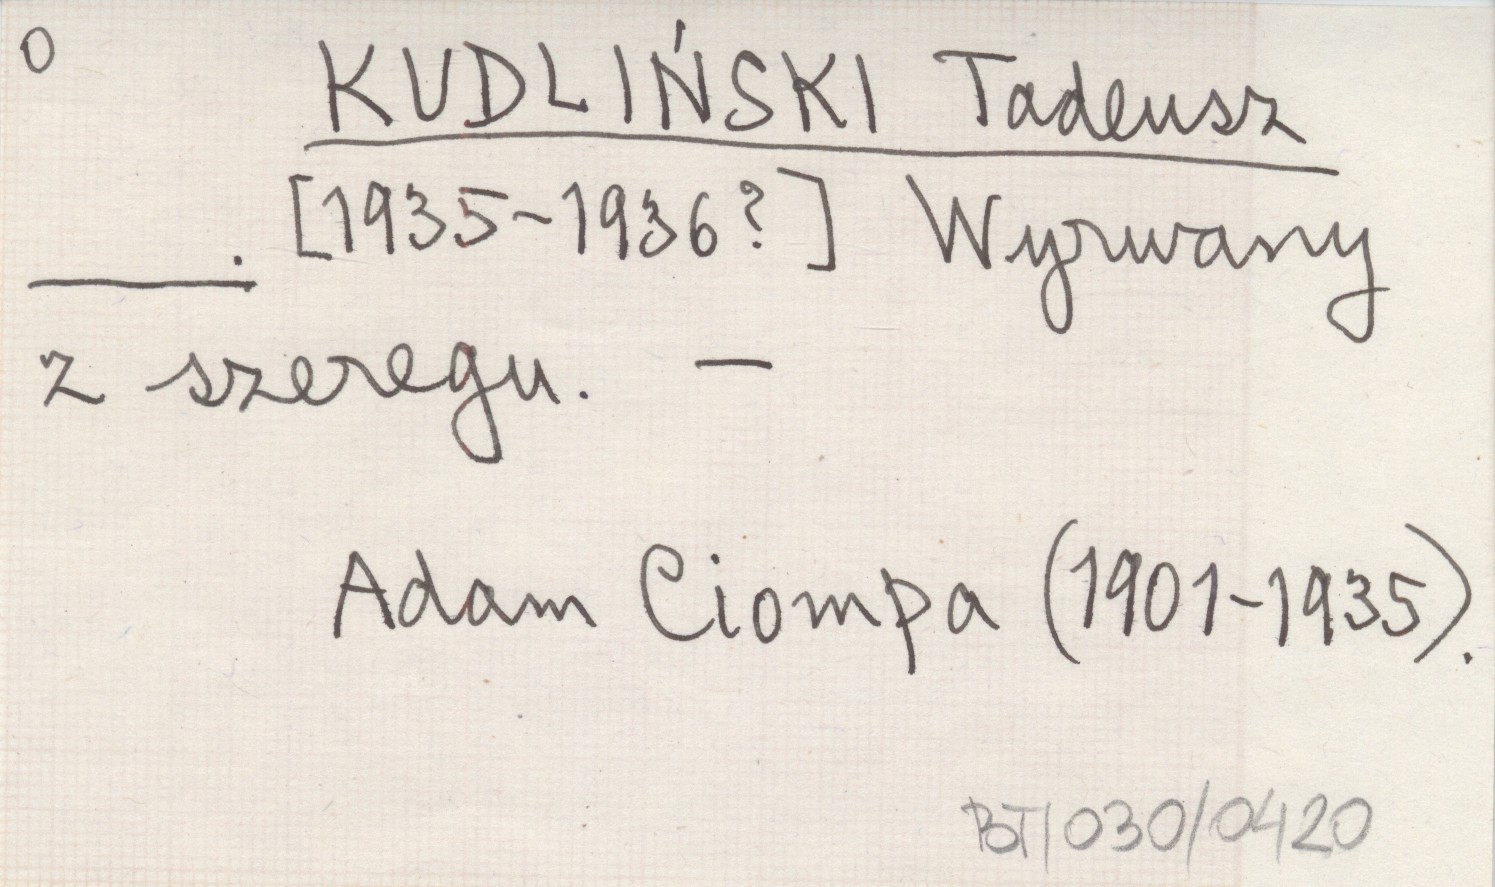 0
KUDLIŃSKI Tadeusz
. [1935-1936?] Wyrwany
z szeregu. —
Adam Ciompa (1901-1935).
BT/030/0420